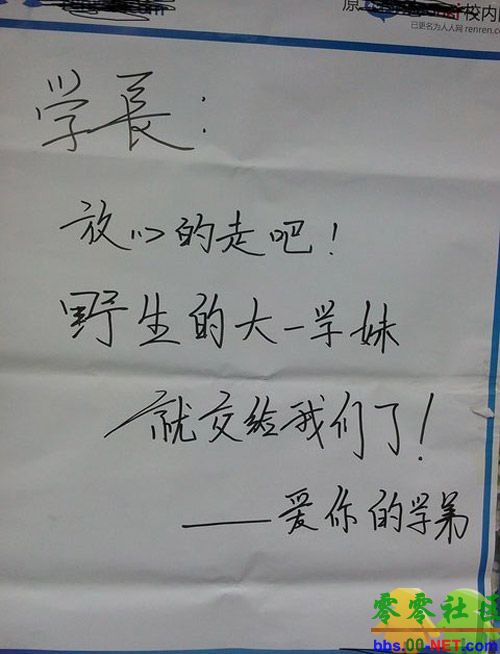 校内
已更名为人人网 renren.c
学長：
放心的走吧！
野生的大一学妹
就交给我们了！
——爱你的学弟
零零社区
bbs.00-NET.com